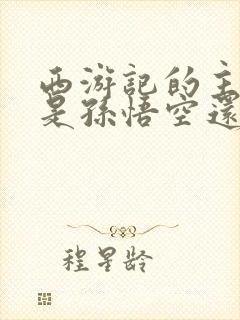 西游記的主
是孫悟空還
程星龄